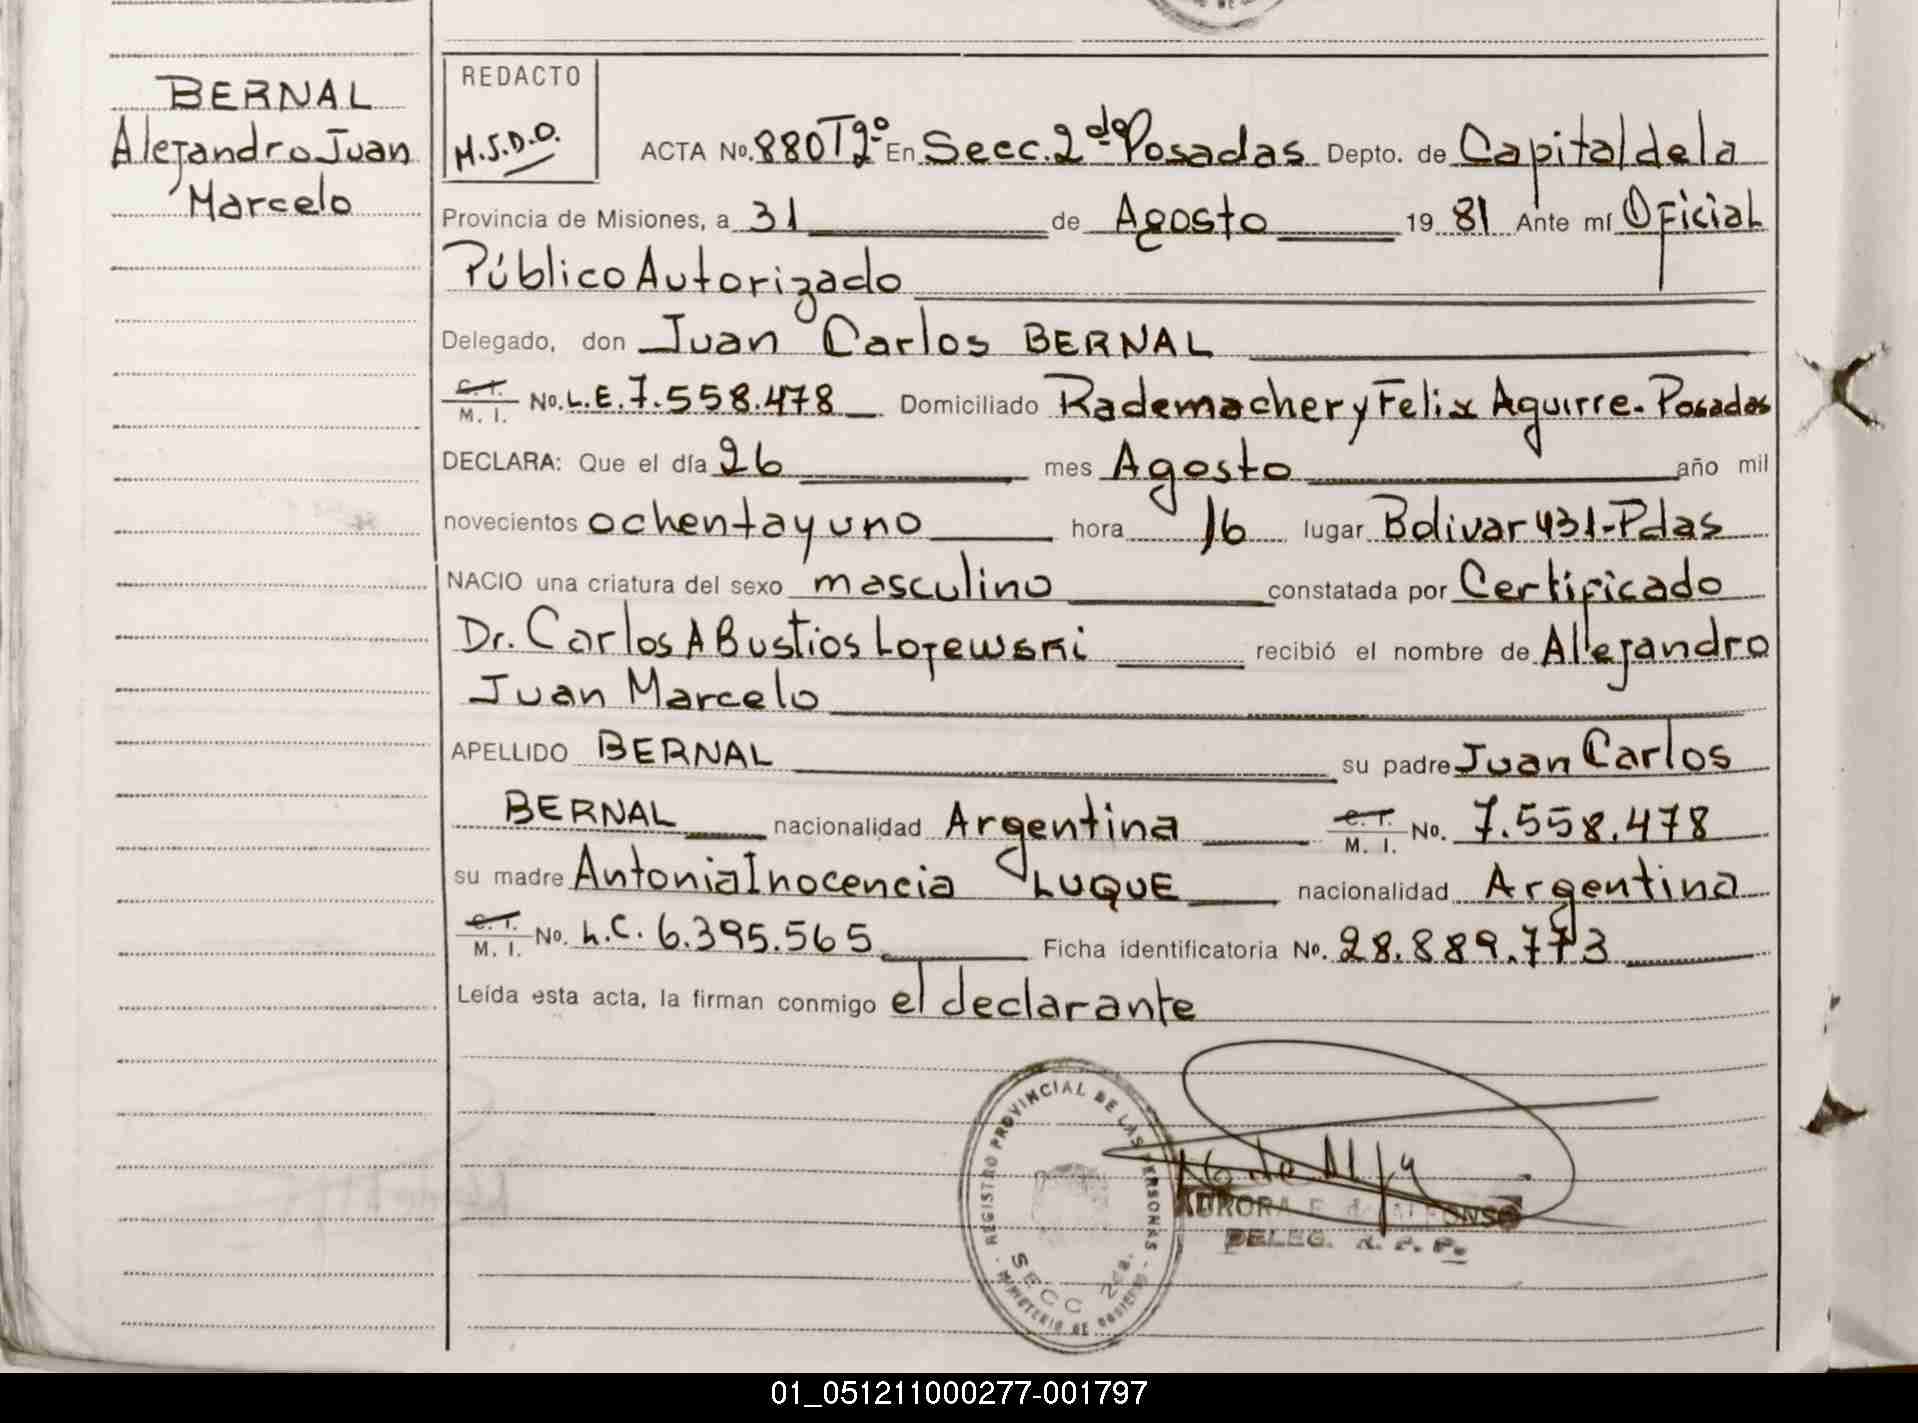 BERNAL
Alejandro Juan
Marcelo
REDACTO
M.S.D.O.
ACTA No. 880 T2º En Secc. 2da Posadas Depto. de Capital de la
Provincia de Misiones, a 31 de Agosto 1981 Ante mí Oficial
Público Autorizado
Delegado, don Juan Carlos BERNAL
C. I. / M. I. No. L.E. 7.558.478 Domiciliado Rademacher y Felix Aguirre - Posadas
DECLARA: Que el día 26 mes Agosto año mil
novecientos ochenta y uno hora 16 lugar Bolivar 431 - Pdas
NACIO una criatura del sexo masculino constatada por Certificado
Dr. Carlos A Bustios Lojewski recibió el nombre de Allejandro
Juan Marcelo
APELLIDO BERNAL su padre Juan Carlos
BERNAL nacionalidad Argentina C. I. / M. I. No. 7.558.478
su madre Antonia Inocencia LUQUE nacionalidad Argentina
C. I. / M. I. No. L.C. 6.395.565 Ficha identificatoria No. 28.889.773
Leída esta acta, la firman conmigo el declarante
REGISTRO PROVINCIAL DE LAS PERSONAS
SECC 2da.
MINISTERIO DE GOBIERNO
AURORA E. de ALFONSO
DELEG. R. P. P.
01_051211000277-001797